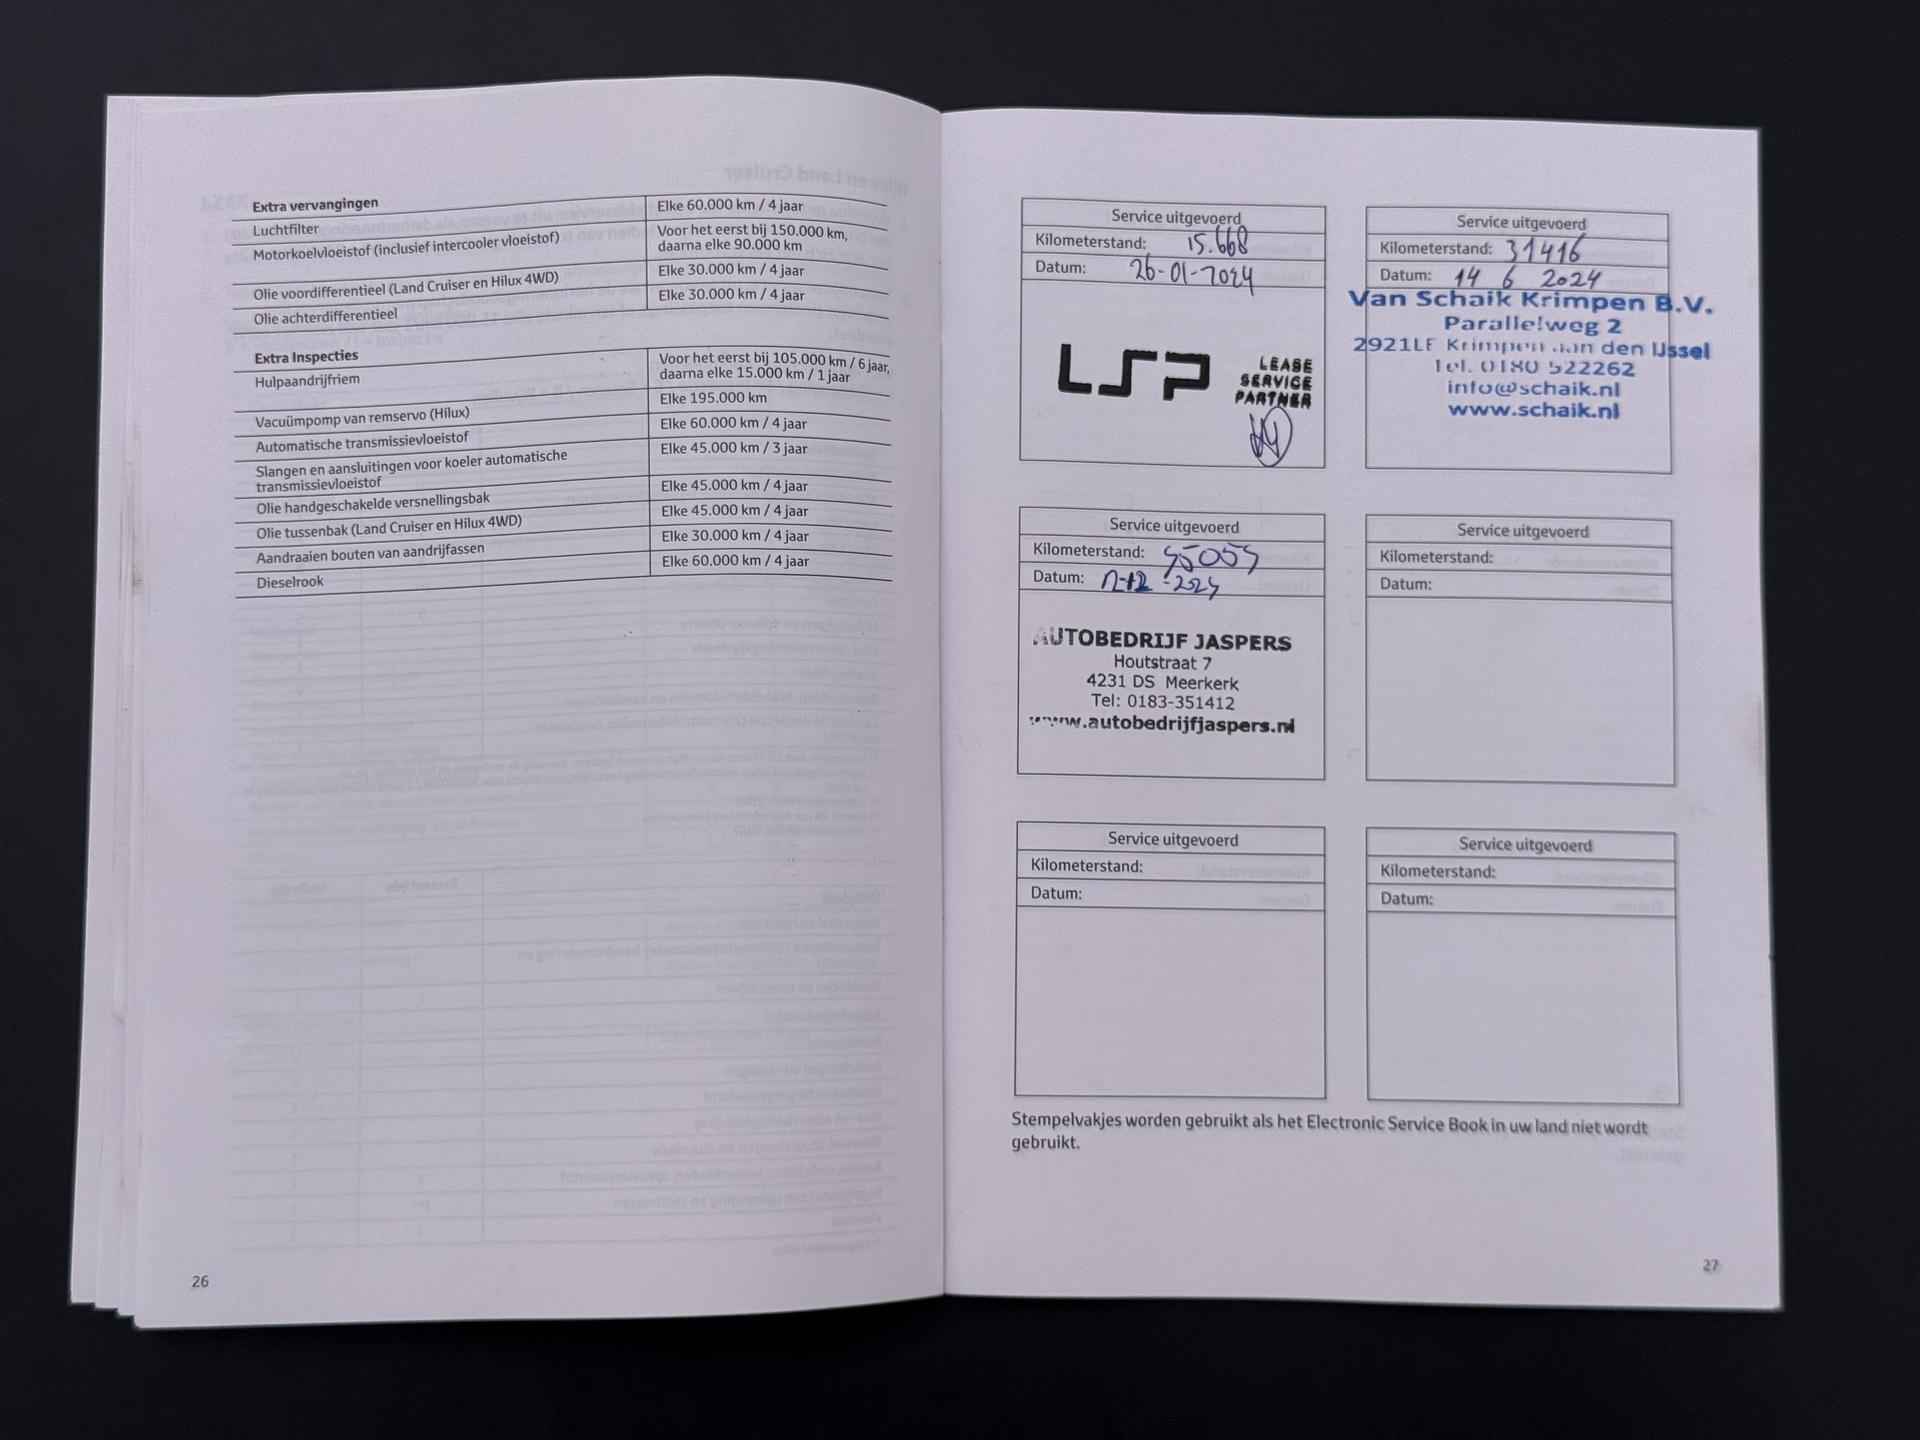 Extra vervangingen
Elke 60.000 km / 4 jaar
Luchtfilter
Voor het eerst bij 150.000 km,
daarna elke 90.000 km
Motorkoelvloeistof (inclusief intercooler vloeistof)
Elke 30.000 km / 4 jaar
Olie voordifferentieel (Land Cruiser en Hilux 4WD)
Elke 30.000 km / 4 jaar
Olie achterdifferentieel
Extra Inspecties
Voor het eerst bij 105.000 km / 6 jaar,
daarna elke 15.000 km / 1 jaar
Hulpaandrijfriem
Elke 195.000 km
Vacuümpomp van remservo (Hilux)
Elke 60.000 km / 4 jaar
Automatische transmissievloeistof
Elke 45.000 km / 3 jaar
Slangen en aansluitingen voor koeler automatische
transmissievloeistof
Elke 45.000 km / 4 jaar
Olie handgeschakelde versnellingsbak
Elke 45.000 km / 4 jaar
Olie tussenbak (Land Cruiser en Hilux 4WD)
Elke 30.000 km / 4 jaar
Aandraaien bouten van aandrijfassen
Elke 60.000 km / 4 jaar
Dieselrook
26
Service uitgevoerd
Kilometerstand: 15.668
Datum: 26-01-2024
LSP
LEASE
SERVICE
PARTNER
Service uitgevoerd
Kilometerstand: 31416
Datum: 14 6 2024
Van Schaik Krimpen B.V.
Parallelweg 2
2921LE Krimpen aan den IJssel
Tel. 0180 522262
info@schaik.nl
www.schaik.nl
Service uitgevoerd
Kilometerstand:
Datum:
AUTOBEDRIJF JASPERS
Houtstraat 7
4231 DS Meerkerk
Tel: 0183-351412
www.autobedrijfjaspers.nl
Service uitgevoerd
Kilometerstand:
Datum:
Service uitgevoerd
Kilometerstand:
Datum:
Service uitgevoerd
Kilometerstand:
Datum:
Stempelvakjes worden gebruikt als het Electronic Service Book in uw land niet wordt
gebruikt.
27